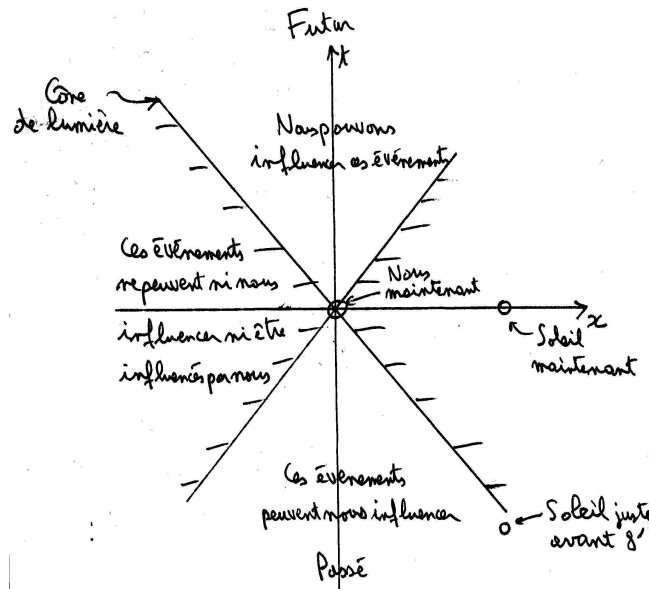 Futur
t
Cône
de lumière
Nous pouvons
influencer ces événements
Ces événements
ne peuvent ni nous
influencer ni être
influencés par nous
Nous
maintenant
x
Soleil
maintenant
Ces évènements
peuvent nous influencer
Soleil juste
avant 8'
Passé